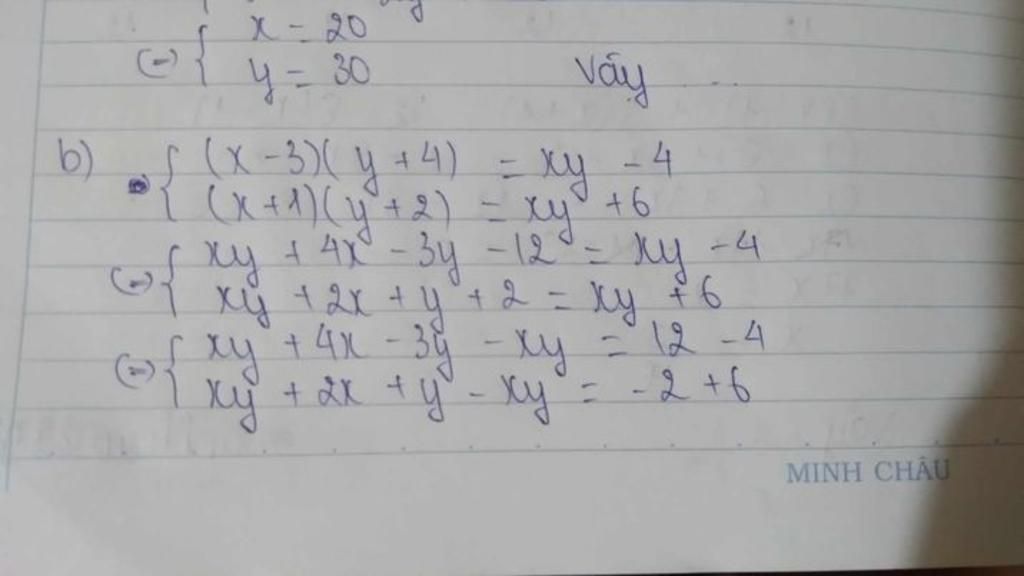 (=) { x = 20
y = 30 Vậy ...
b) { (x - 3)(y + 4) = xy - 4
(x + 1)(y + 2) = xy + 6
(=) { xy + 4x - 3y - 12 = xy - 4
xy + 2x + y + 2 = xy + 6
(=) { xy + 4x - 3y - xy = 12 - 4
xy + 2x + y - xy = - 2 + 6
MINH CHÂU